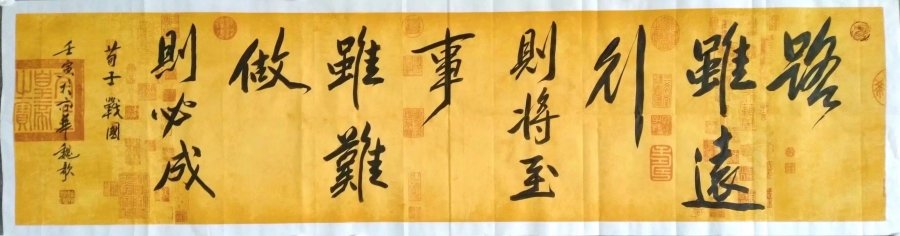 路
雖遠
行
則将至
事
雖難
做
則必成
荀子 戰國
壬寅 京華 魏